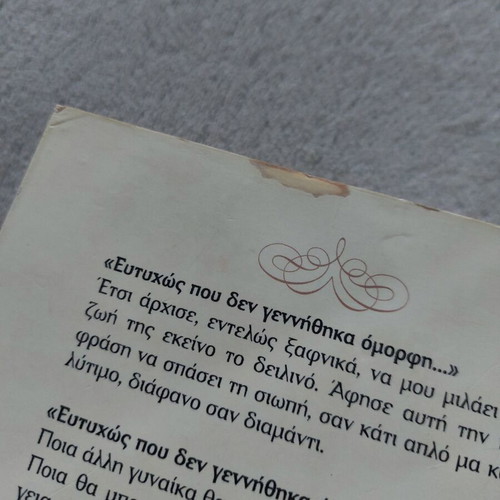 «Ευτυχώς που δεν γεννήθηκα όμορφη...»
Έτσι άρχισε, εντελώς ξαφνικά, να μου μιλάει
ζωή της εκείνο το δειλινό. Άφησε αυτή την
φράση να σπάσει τη σιωπή, σαν κάτι απλό μα
λύτιμο, διάφανο σαν διαμάντι.
«Ευτυχώς που δεν γεννήθηκα
Ποια άλλη γυναίκα
Ποια θα